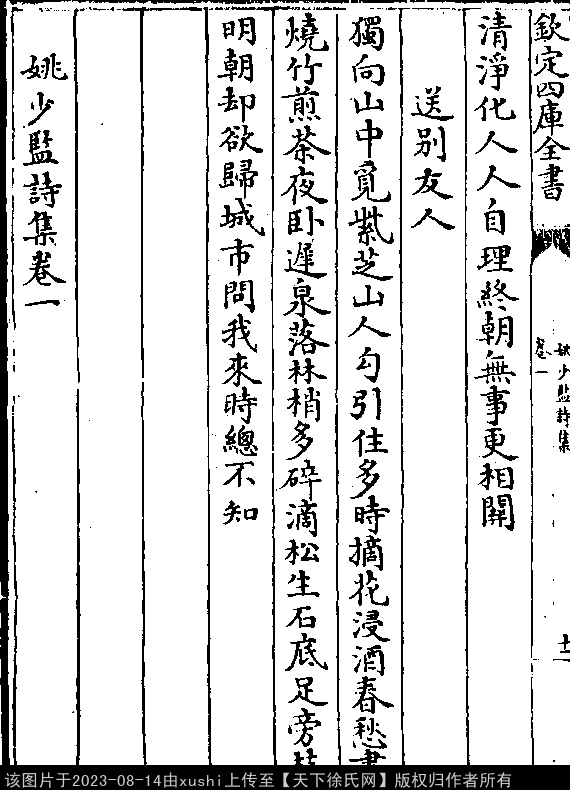 欽定四庫全書
姚少監詩集
卷一
十二
清淨化人人自理終朝無事更相關
送别友人
獨向山中覓紫芝山人勾引住多時摘花浸酒春愁
燒竹煎茶夜卧遲泉落林梢多碎滴松生石底足旁
明朝却欲歸城市問我來時總不知
姚少監詩集卷一
该图片于2023-08-14由xushi上传至【天下徐氏网】版权归作者所有